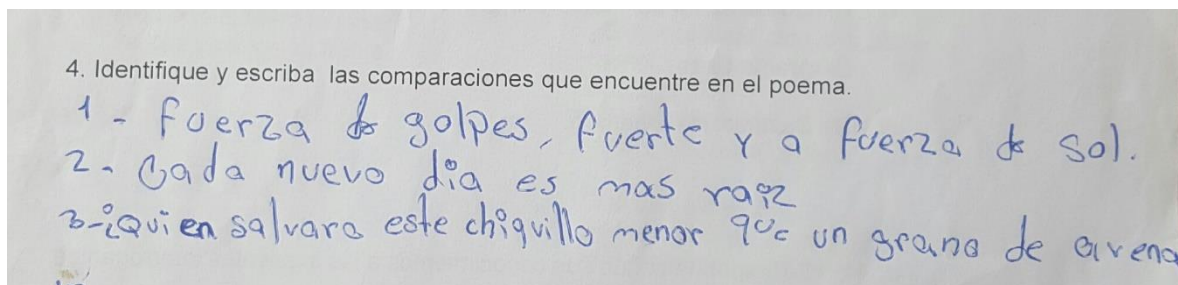 4. Identifique y escriba las comparaciones que encuentre en el poema.
1 - fuerza de golpes, fuerte y a fuerza de sol.
2 - Cada nuevo dia es mas raiz
3-¿Quien salvara este chiquillo menor que un grano de avena